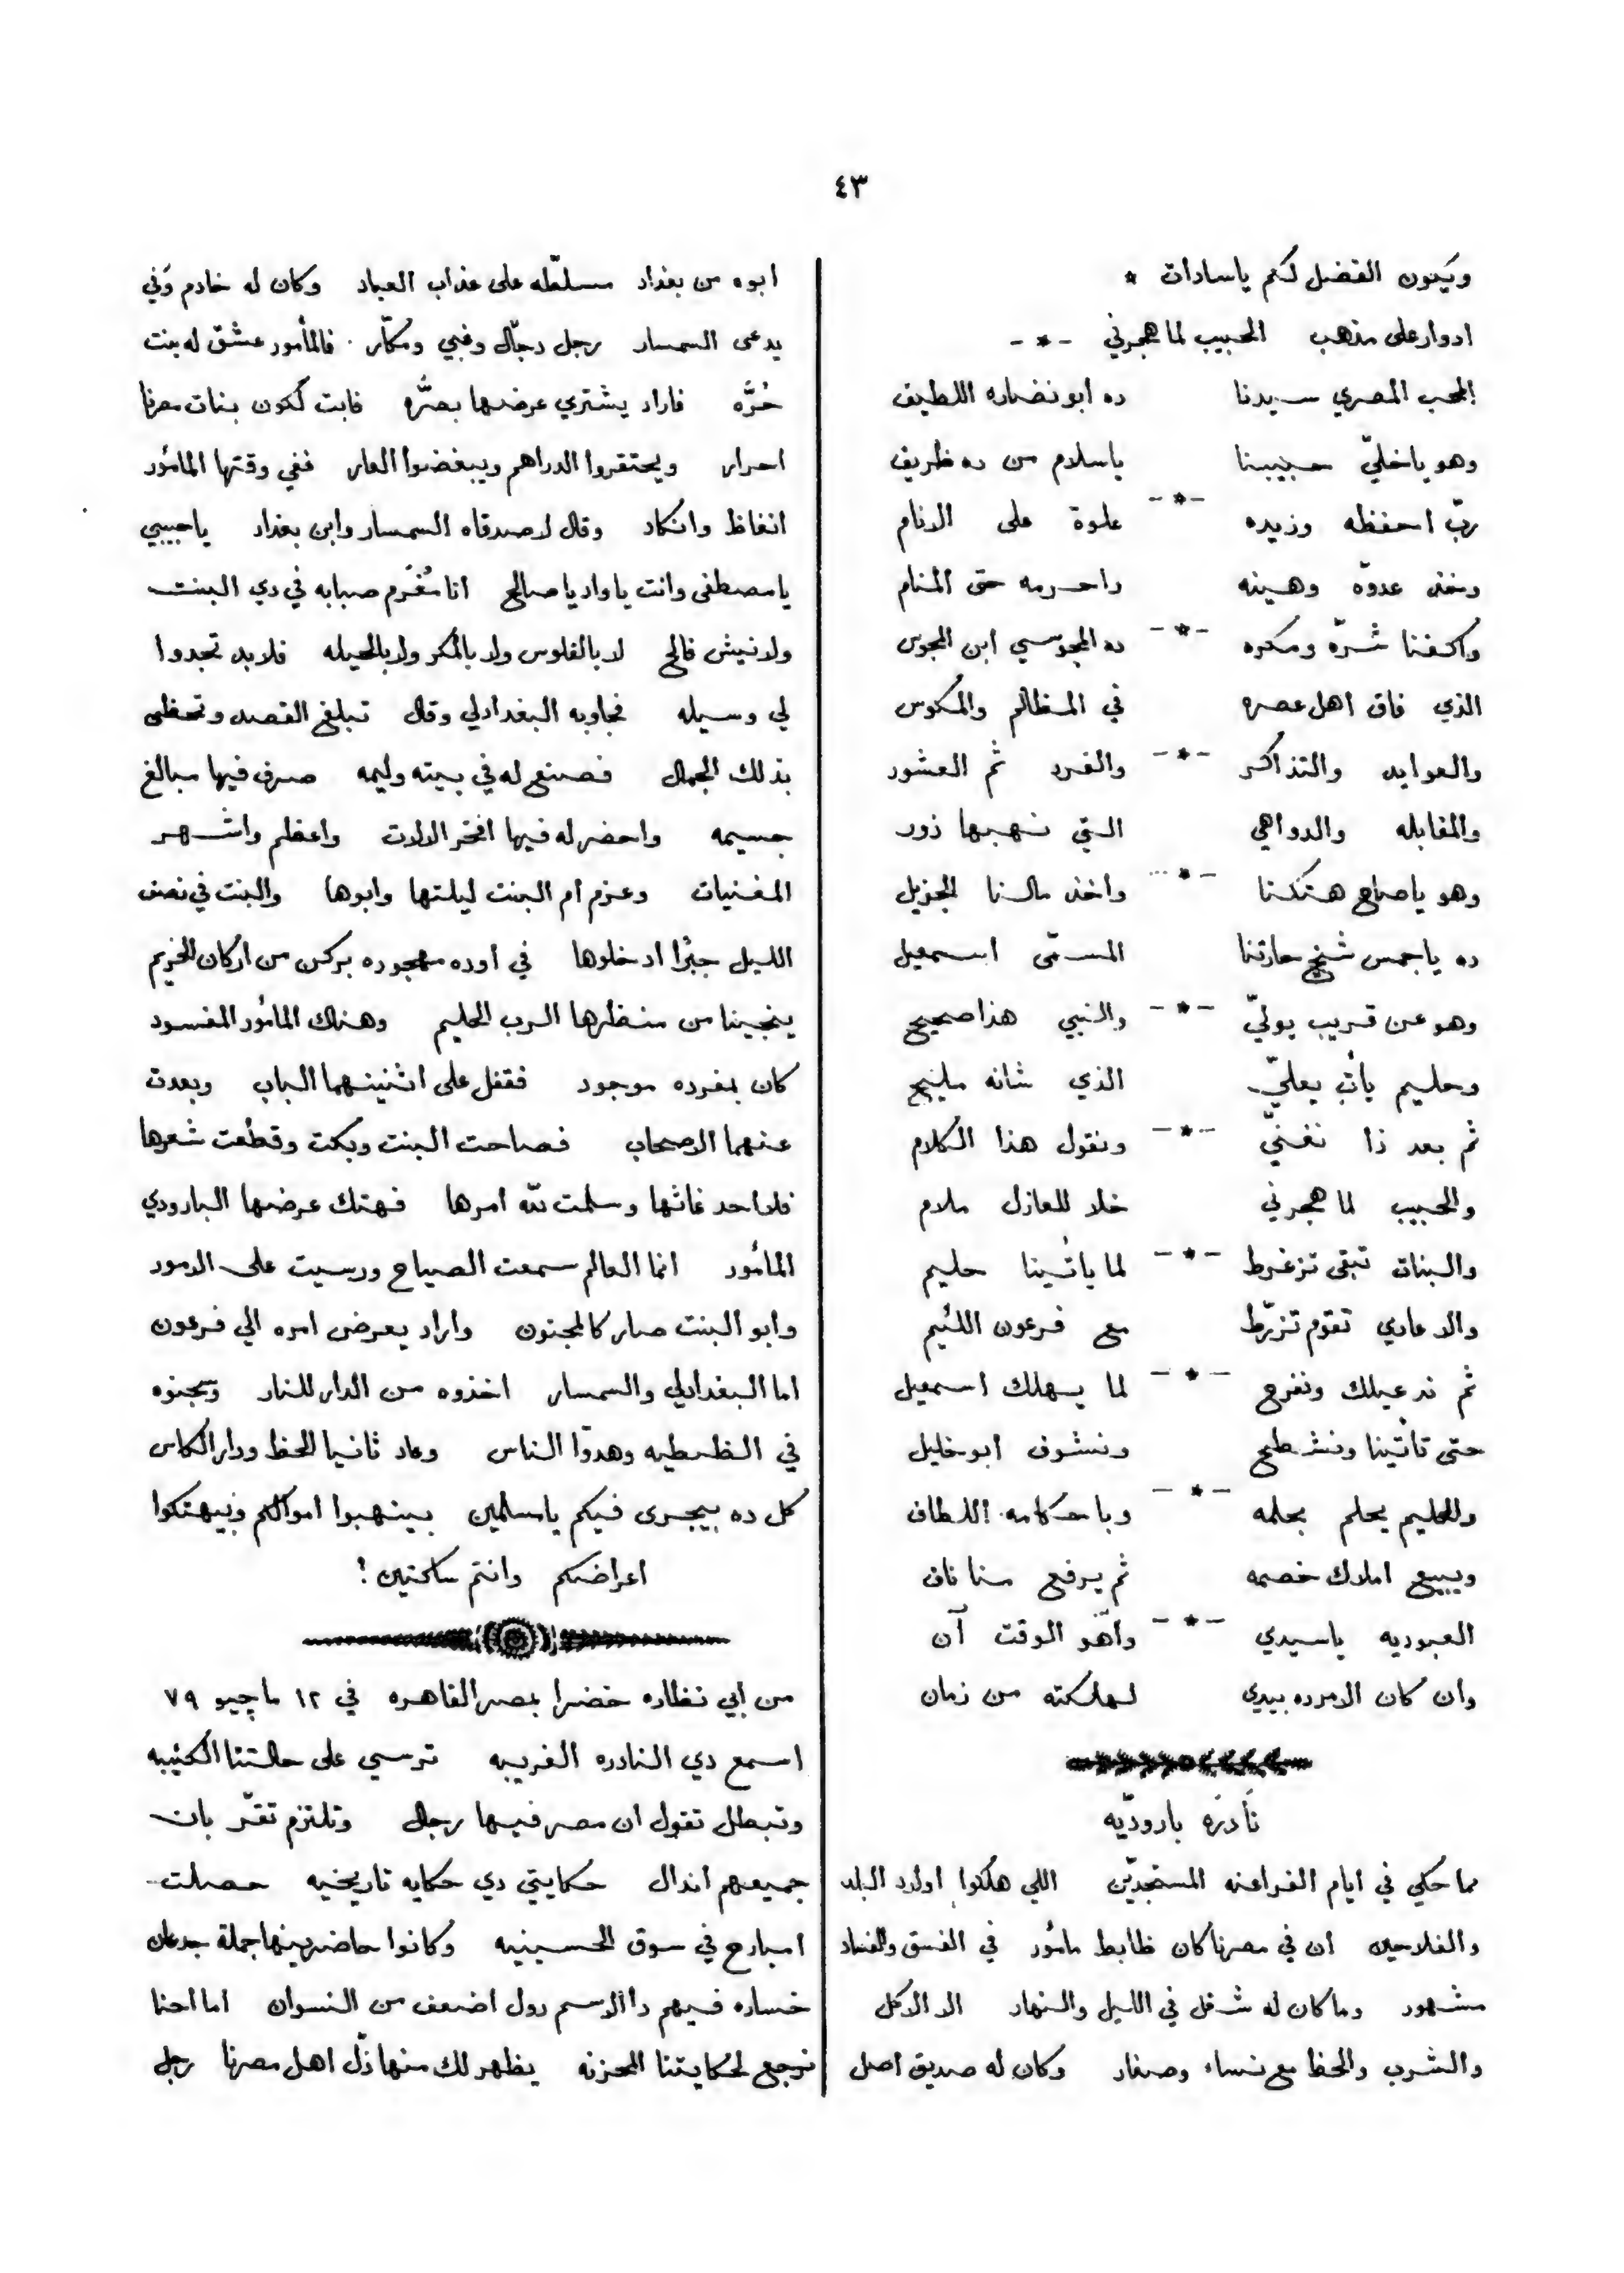 ٤٣
ويكون الفضل لكم ياسادات *
ادوار على مذهب الحبيب لما هجرني - * -
المحب المصري سيدنا ده ابو نضاره اللطيف
وهو ياخليّ حبيبنا ياسلام من ده ظريف
- * -
ربّ احفظه وزيده علوة على الانام
وخذ عدوّه وهينه واحرمه حتى المنام
- * -
واكفنا شرّه ومكره ده المجوسي ابن المجوس
الذي فاق اهل عصره في المظالم والمكوس
- * -
والعوايد والتذاكر والفرد ثم العشور
والمقابله والدواهي التي نهبها زور
- * -
وهو ياصاح هتكنا واخذ مالنا الجزيل
ده ياجمس شيخ حارتنا المسمّى اسمعيل
- * -
وهو عن قريب يوليّ والنبي هذا صحيح
وحليم يأتِ يعليّ الذي شانه مليح
- * -
ثم بعد ذا نغنيّ ونقول هذا الكلام
والحبيب لما هجرني خلا للعازل ملام
- * -
والبنات تبقى تزغرط لما يأتينا حليم
والاعادي تقوم تزرّط مع فرعون اللئيم
- * -
ثم ندعيلك ونفرح لما يهلك اسمعيل
حتى تأتينا ونشطح ونشوف ابو خليل
- * -
وللحليم يحلم بحلمه وباحكامه اللطاف
ويبيع املاك خصمه ثم يرفع سنا ناف
- * -
العبوديه ياسيدي وآهو الوقت آن
وان كان الامرده بيدي لهلكته من زمان
نَادرَه باروديّه
مما حكي في ايام الفراعنه المستجدّين اللي هلكوا اولاد البلد
والفلاحين ان في مصرنا كان ظابط مأمور في الفسق والفساد
مشهور وما كان له شغل في الليل والنهار الا الاكل
والشرب والحظ مع نساء وصغار وكان له صديق اصل
ابوه من بغداد مسلّطه على عذاب العباد وكان له خادم وَفي
يدعى السمسار رجل دجّال وغبي ومكّار . فالمأمور عشق له بنت
حُرَّه فاراد يشتري عرضها بصرَّه فابت لكون بنات مصرنا
احرار ويحتقروا الدراهم ويبغضوا العار ففي وقتها المأمور
انغاظ وانكاد وقال لاصدقاه السمسار وابن بغداد ياحبيبي
يامصطفى وانت ياواد ياصالح انا مُغْرَم صبابه في دي البنت
ولانيش فالح لا بالفلوس ولا بالمكر ولا بالحيله فلابد تجدوا
لي وسيله فجاوبه البغدادلي وقال تبلغ القصد وتحظى
بذلك الجمال فصنع له في بيته وليمه صرف فيها مبالغ
جسيمه واحضر له فيها افخر الالات واعظم واشهر
المغنيات وعزم ام البنت ليلتها وابوها والبنت في نصف
الليل جبرًا ادخلوها في اوده مهجوره بركن من اركان الحريم
ينجينا من منظرها الرب الحليم وهناك المأمور المفسود
كان بمفرده موجود فقفل على اثنينهما الباب وبعدت
عنهما الاصحاب فصاحت البنت وبكت وقطعت شعرها
فلا احد غاثها وسلمت لله امرها فهتك عرضها البارودي
المأمور انما العالم سمعت الصياح ورسيت على الامور
وابو البنت صار كالمجنون واراد يعرض امره الي فرعون
اما البغدادلي والسمسار اخذوه من الدار للنار وسجنوه
في الظبطيه وهدوّا الناس وعاد ثانيا للحظ ودار الكاس
كل ده بيجرى فيكم يامسلمين بينهبوا اموالكم وبيهتكوا
اعراضكم وانتم ساكتين !
من ابي نظاره خضرا بمصر القاهره في ١٢ مايچيو ٧٩
اسمع دي النادره الغريبه ترسي على حالتنا الكئيبه
وتبطل تقول ان مصر فيها رجال وتلتزم تقرّ بان
جميعهم اندال حكايتي دي حكايه تاريخيه حصلت
امبارح في سوق الحسينيه وكانوا حاضرينها جملة جدعان
خساره فيهم دا الاسم دول اضعف من النسوان اما احنا
نرجع لحكايتنا المحزنه يظهر لك منها ذلّ اهل مصرنا رجل